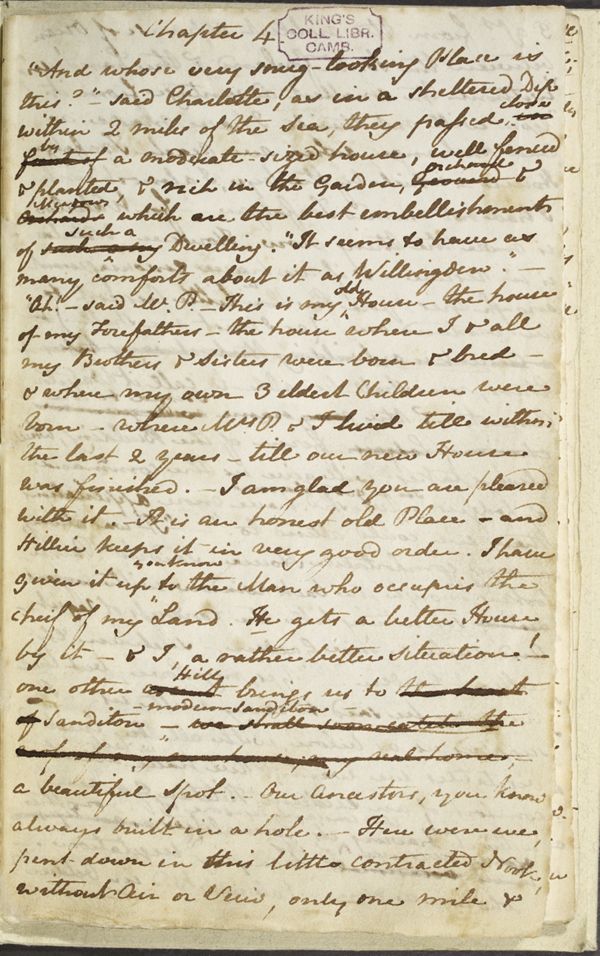 Chapter 4
KING'S
COLL. LIBR.
CAMB.
"And whose very snug-looking Place is
this?" - said Charlotte, as in a sheltered Dip
within 2 miles of the Sea, they passed close
by a moderate-sized house, well fenced
& planted, & rich in the Garden, orchard &
Meadows which are the best embellishments
of such a Dwelling. "It seems to have as
many comforts about it as Willingden." -
"Ah. - said Mr. P. - This is my old House - the house
of my Forefathers - the house where I & all
my Brothers & Sisters were born & bred -
& where my own 3 eldest Children were
born - where Mrs. P. & I lived till within
the last 2 years - till our new House
was finished. - I am glad you are pleased
with it. - It is an honest old Place - and
Hillier keeps it in very good order. I have
given it up you know to the Man who occupies the
cheif of my Land. He gets a better House
by it - & I, a rather better situation! -
one other Hill brings us to
Sanditon - modern Sanditon -
a beautiful Spot. - Our Ancestors, you know
always built in a hole. - Here were we,
pent down in this little contracted Nook,
without Air or Veiw, only one mile &